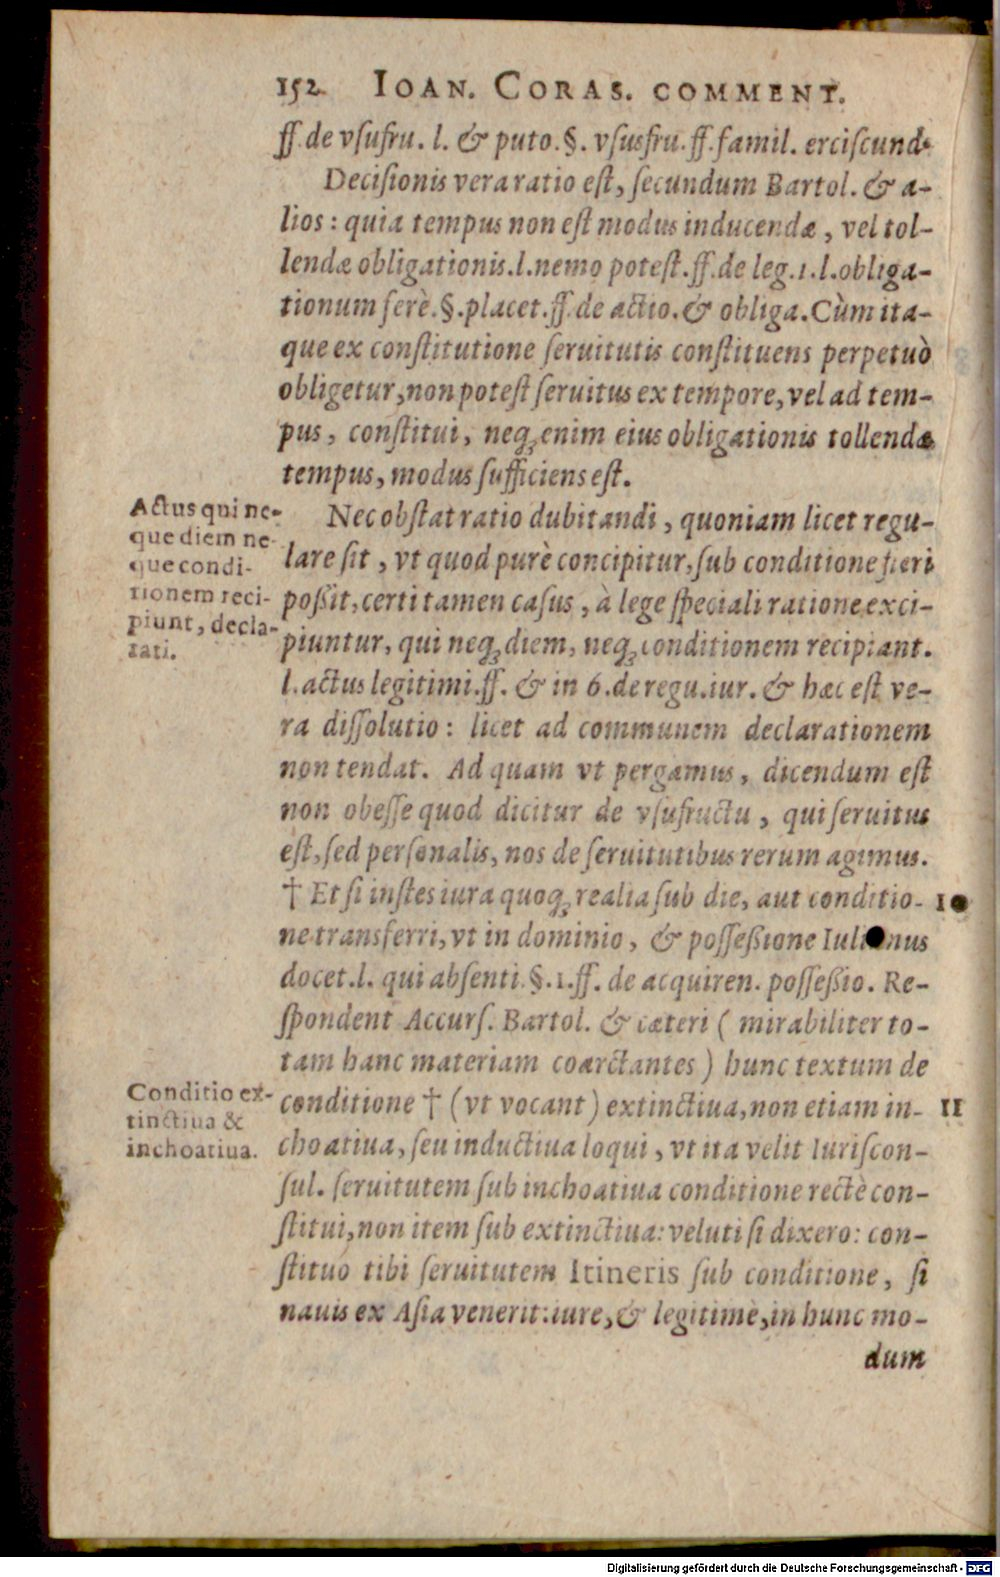 152. IOAN. CORAS. COMMENT.
ff. de vſufru. l. & puto. §. vſusfru. ff. famil. erciſcund.
Deciſionis vera ratio eſt, ſecundum Bartol. & a-
lios: quia tempus non eſt modus inducendæ, vel tol-
lendæ obligationis. l. nemo poteſt. ff. de leg. 1. l. obliga-
tionum ferè. §. placet. ff. de actio. & obliga. Cùm ita-
que ex conſtitutione ſeruitutis conſtituens perpetuò
obligetur, non poteſt ſeruitus ex tempore, vel ad tem-
pus, conſtitui, neq; enim eius obligationis tollendæ
tempus, modus ſufficiens eſt.
Actus qui ne-
que diem ne-
que condi-
tionem reci-
piunt, decla-
rati.
Nec obſtat ratio dubitandi, quoniam licet regu-
lare ſit, vt quod purè concipitur, ſub conditione fieri
poßit, certi tamen caſus, à lege ſpeciali ratione exci-
piuntur, qui neq; diem, neq; conditionem recipiant.
l. actus legitimi. ff. & in 6. de regu. iur. & hæc eſt ve-
ra diſſolutio: licet ad communem declarationem
non tendat. Ad quam vt pergamus, dicendum eſt
non obeſſe quod dicitur de vſufructu, qui ſeruitus
eſt, ſed perſonalis, nos de ſeruitutibus rerum agimus.
† Et ſi inſtes iura quoq; realia ſub die, aut conditio- 10
ne transferri, vt in dominio, & poſſeßione Iulianus
docet. l. qui abſenti. §. 1. ff. de acquiren. poſſeßio. Re-
ſpondent Accurſ. Bartol. & cæteri (mirabiliter to-
tam hanc materiam coarctantes) hunc textum de
Conditio ex-
tinctiua &
inchoatiua.
conditione † (vt vocant) extinctiua, non etiam in- 11
choatiua, ſeu inductiua loqui, vt ita velit Iuriſcon-
ſul. ſeruitutem ſub inchoatiua conditione rectè con-
ſtitui, non item ſub extinctiua: veluti ſi dixero: con-
ſtituo tibi ſeruitutem Itineris ſub conditione, ſi
nauis ex Aſia venerit: iure, & legitimè, in hunc mo-
dum
Digitalisierung gefördert durch die Deutsche Forschungsgemeinschaft - DFG